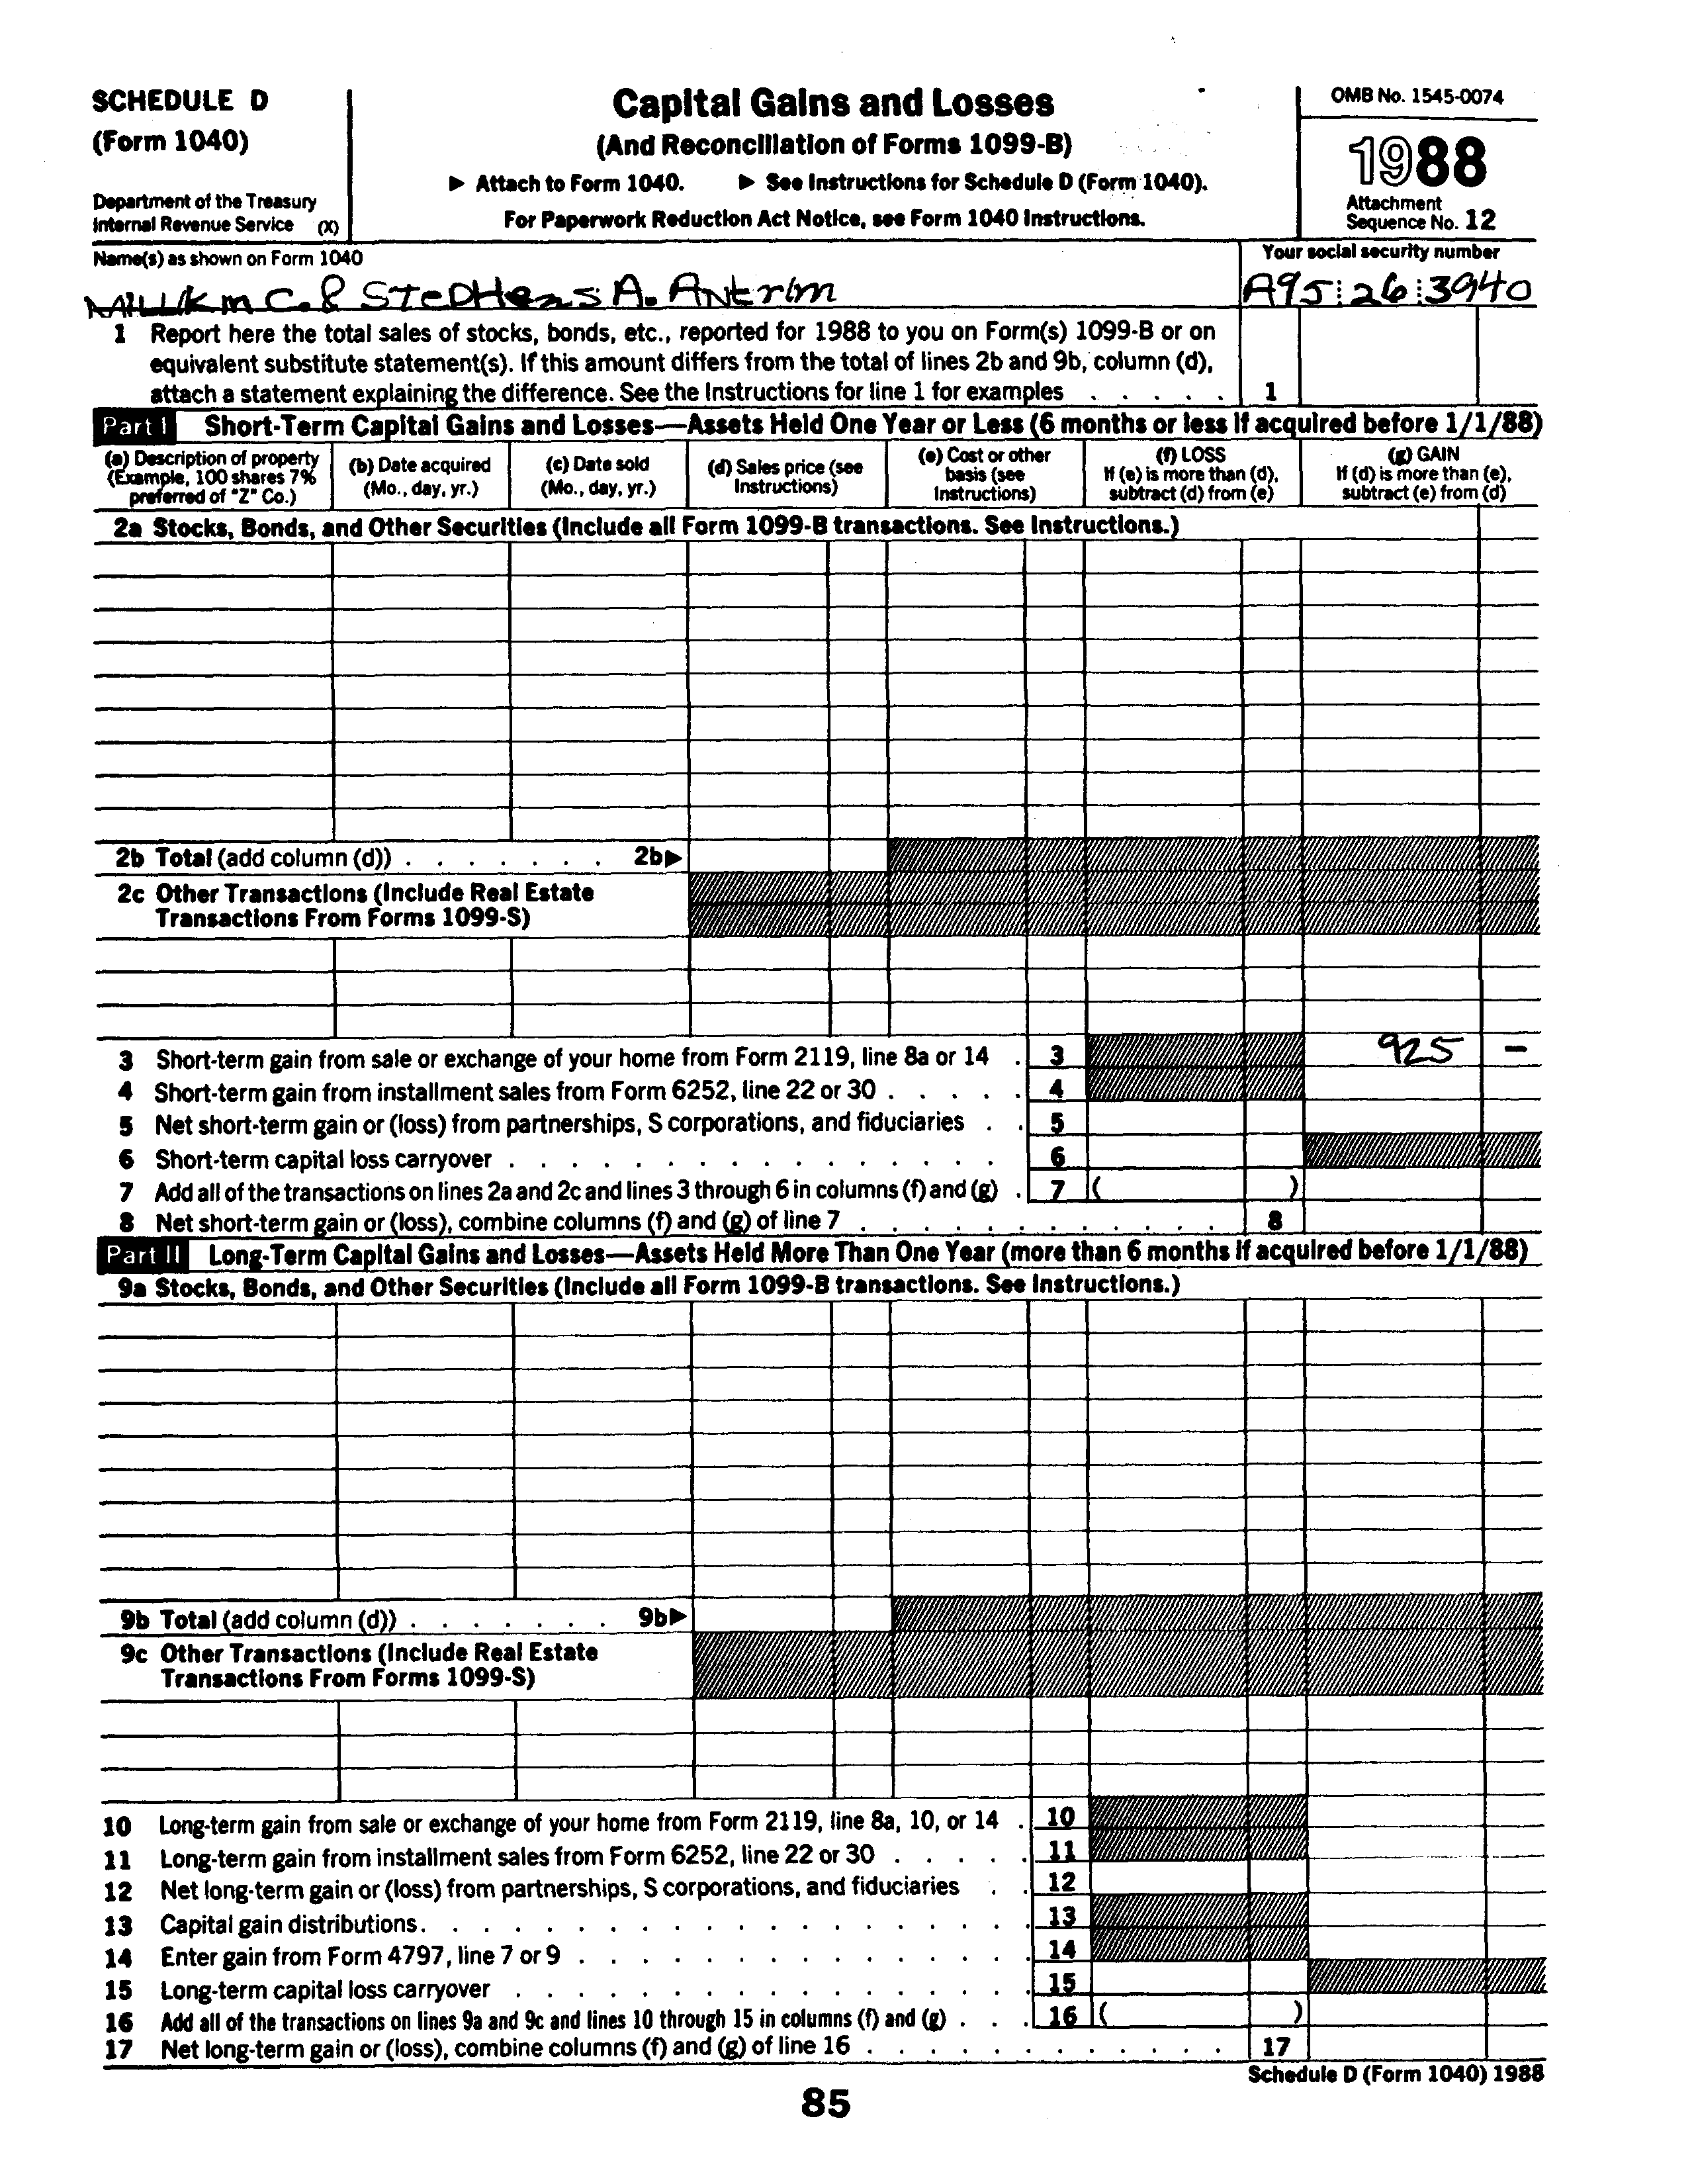 SCHEDULE D
(Form 1040)
Department of the Treasury
Internal Revenue Service (X)
Capital Gains and Losses
(And Reconciliation of Forms 1099-B)
► Attach to Form 1040. ► See Instructions for Schedule D (Form 1040).
For Paperwork Reduction Act Notice, see Form 1040 Instructions.
OMB No. 1545-0074
1988
Attachment
Sequence No. 12
Name(s) as shown on Form 1040
Your social security number
C. & StePHens A. Antrim
A95 26 3940
1 Report here the total sales of stocks, bonds, etc., reported for 1988 to you on Form(s) 1099-B or on
equivalent substitute statement(s). If this amount differs from the total of lines 2b and 9b, column (d),
attach a statement explaining the difference. See the Instructions for line 1 for examples . . . . . 1
Part I Short-Term Capital Gains and Losses—Assets Held One Year or Less (6 months or less if acquired before 1/1/88)
(a) Description of property
(Example, 100 shares 7%
preferred of "Z" Co.)
(b) Date acquired
(Mo., day, yr.)
(c) Date sold
(Mo., day, yr.)
(d) Sales price (see
Instructions)
(e) Cost or other
basis (see
Instructions)
(f) LOSS
If (e) is more than (d),
subtract (d) from (e)
(g) GAIN
If (d) is more than (e),
subtract (e) from (d)
2a Stocks, Bonds, and Other Securities (Include all Form 1099-B transactions. See Instructions.)
2b Total (add column (d)) . . . . . . . 2b►
2c Other Transactions (Include Real Estate
Transactions From Forms 1099-S)
3 Short-term gain from sale or exchange of your home from Form 2119, line 8a or 14 . 3 925 –
4 Short-term gain from installment sales from Form 6252, line 22 or 30 . . . . . 4
5 Net short-term gain or (loss) from partnerships, S corporations, and fiduciaries . . 5
6 Short-term capital loss carryover . . . . . . . . . . . . . . . . 6
7 Add all of the transactions on lines 2a and 2c and lines 3 through 6 in columns (f) and (g) . 7 ( )
8 Net short-term gain or (loss), combine columns (f) and (g) of line 7 . . . . . . . . . . . . 8
Part II Long-Term Capital Gains and Losses—Assets Held More Than One Year (more than 6 months if acquired before 1/1/88)
9a Stocks, Bonds, and Other Securities (Include all Form 1099-B transactions. See Instructions.)
9b Total (add column (d)) . . . . . . . 9b►
9c Other Transactions (Include Real Estate
Transactions From Forms 1099-S)
10 Long-term gain from sale or exchange of your home from Form 2119, line 8a, 10, or 14 . 10
11 Long-term gain from installment sales from Form 6252, line 22 or 30 . . . . . 11
12 Net long-term gain or (loss) from partnerships, S corporations, and fiduciaries . . 12
13 Capital gain distributions. . . . . . . . . . . . . . . . . . . . 13
14 Enter gain from Form 4797, line 7 or 9 . . . . . . . . . . . . . . 14
15 Long-term capital loss carryover . . . . . . . . . . . . . . . . 15
16 Add all of the transactions on lines 9a and 9c and lines 10 through 15 in columns (f) and (g) . . . 16 ( )
17 Net long-term gain or (loss), combine columns (f) and (g) of line 16 . . . . . . . . . . . . 17
Schedule D (Form 1040) 1988
85